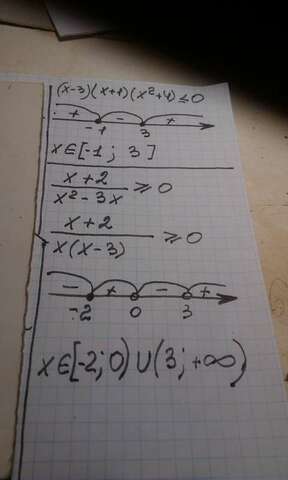 (x-3)(x+1)(x²+4)≤0
+ - +
-1 3
x∈[-1; 3]
x+2
x²-3x
≥0
x+2
x(x-3)
≥0
- + - +
-2 0 3
x∈[-2;0)∪(3;+∞)